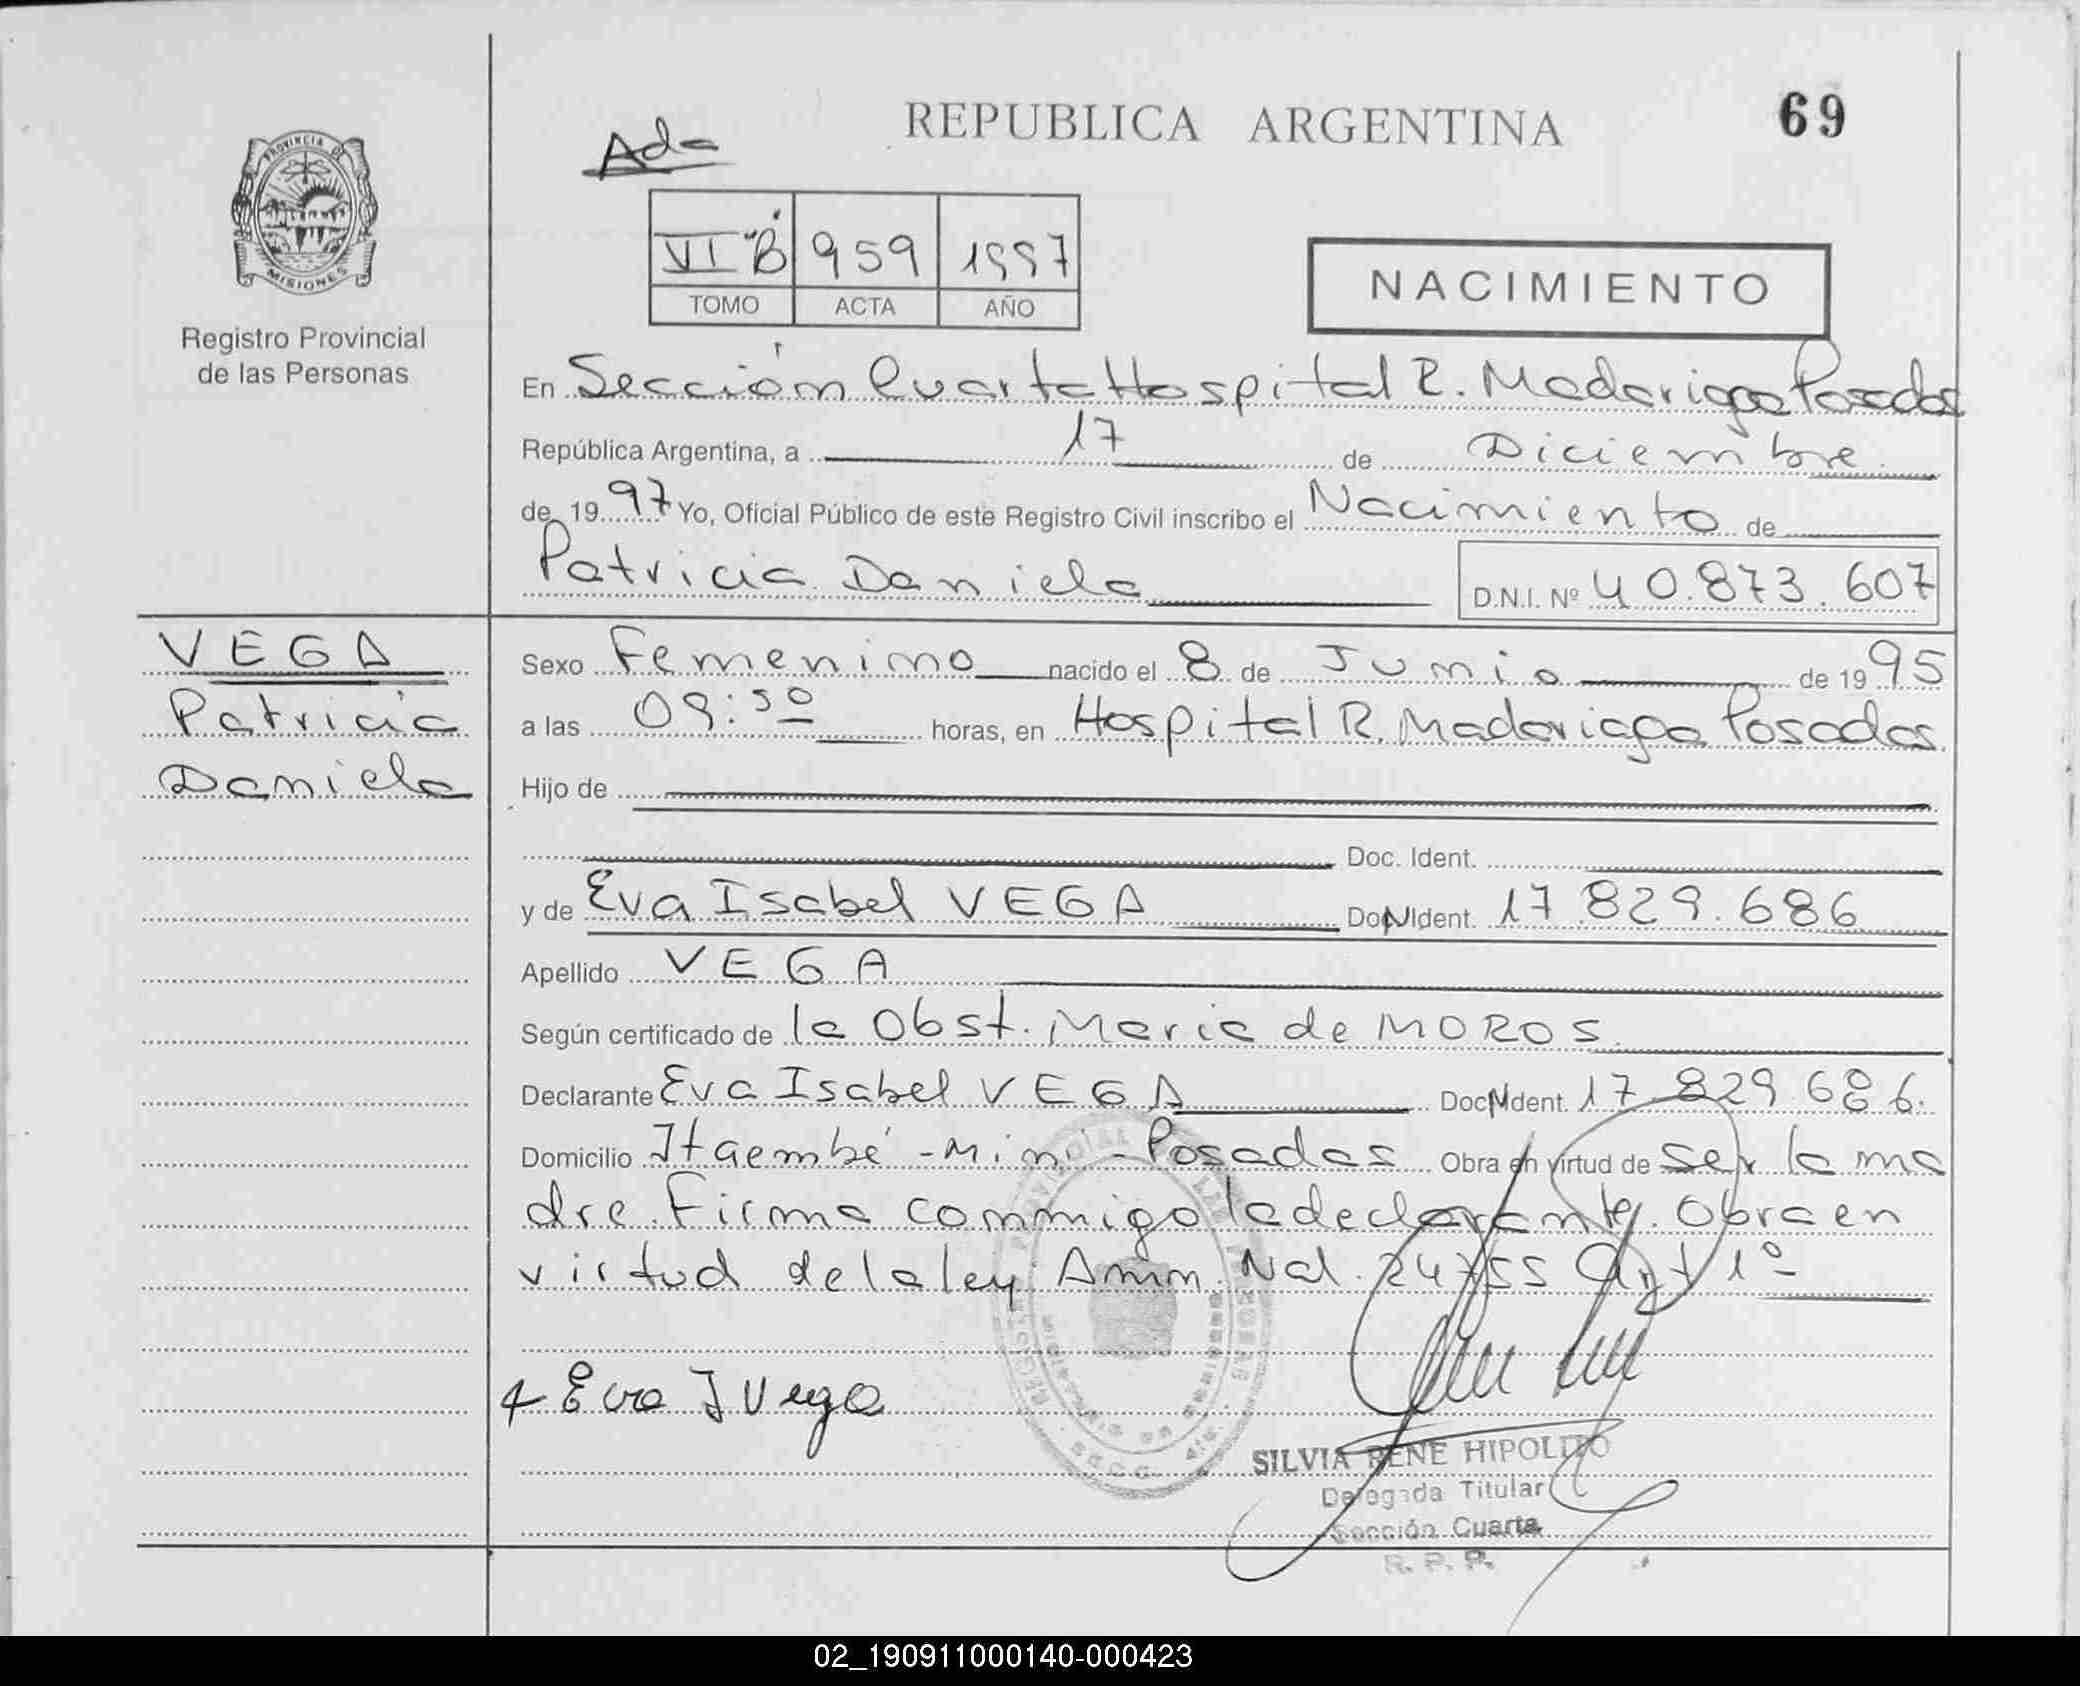 REPUBLICA ARGENTINA
69
Ada
VI "B" 959 1997
TOMO ACTA AÑO
NACIMIENTO
PROVINCIA DE
MISIONES
Registro Provincial
de las Personas
En Sección Cuarta Hospital R. Madariaga Posadas
República Argentina, a 17 de Diciembre
de 1997 Yo, Oficial Público de este Registro Civil inscribo el Nacimiento de
Patricia Daniela D.N.I. Nº 40.873.607
VEGA
Patricia
Daniela
Sexo Femenino nacido el 8 de Junio de 1995
a las 09:30 horas, en Hospital R. Madariaga Posadas
Hijo de
Doc. Ident.
y de Eva Isabel VEGA DoNIdent. 17.829.686
Apellido VEGA
Según certificado de la Obst. Maria de MOROS
Declarante Eva Isabel VEGA Doc. Ident. 17 829 686.
Domicilio Itaembé - Mini - Posadas Obra en virtud de Ser la ma
dre. Firma conmigo la declarante. Obra en
virtud de la ley Amn. Nal. 24755 Art 1º
Eva I Vega
SILVIA RENE HIPOLITO
Delegada Titular
Sección Cuarta
R. P. P.
02_190911000140-000423